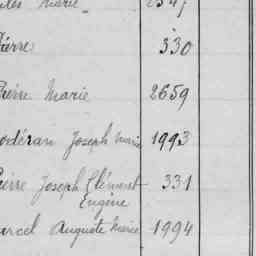 Marie 2547
Pierre 330
Pierre Marie 2659
Joseph Marie 1993
Pierre Joseph Clément 331
Eugène
Marcel Auguste Marie 1994